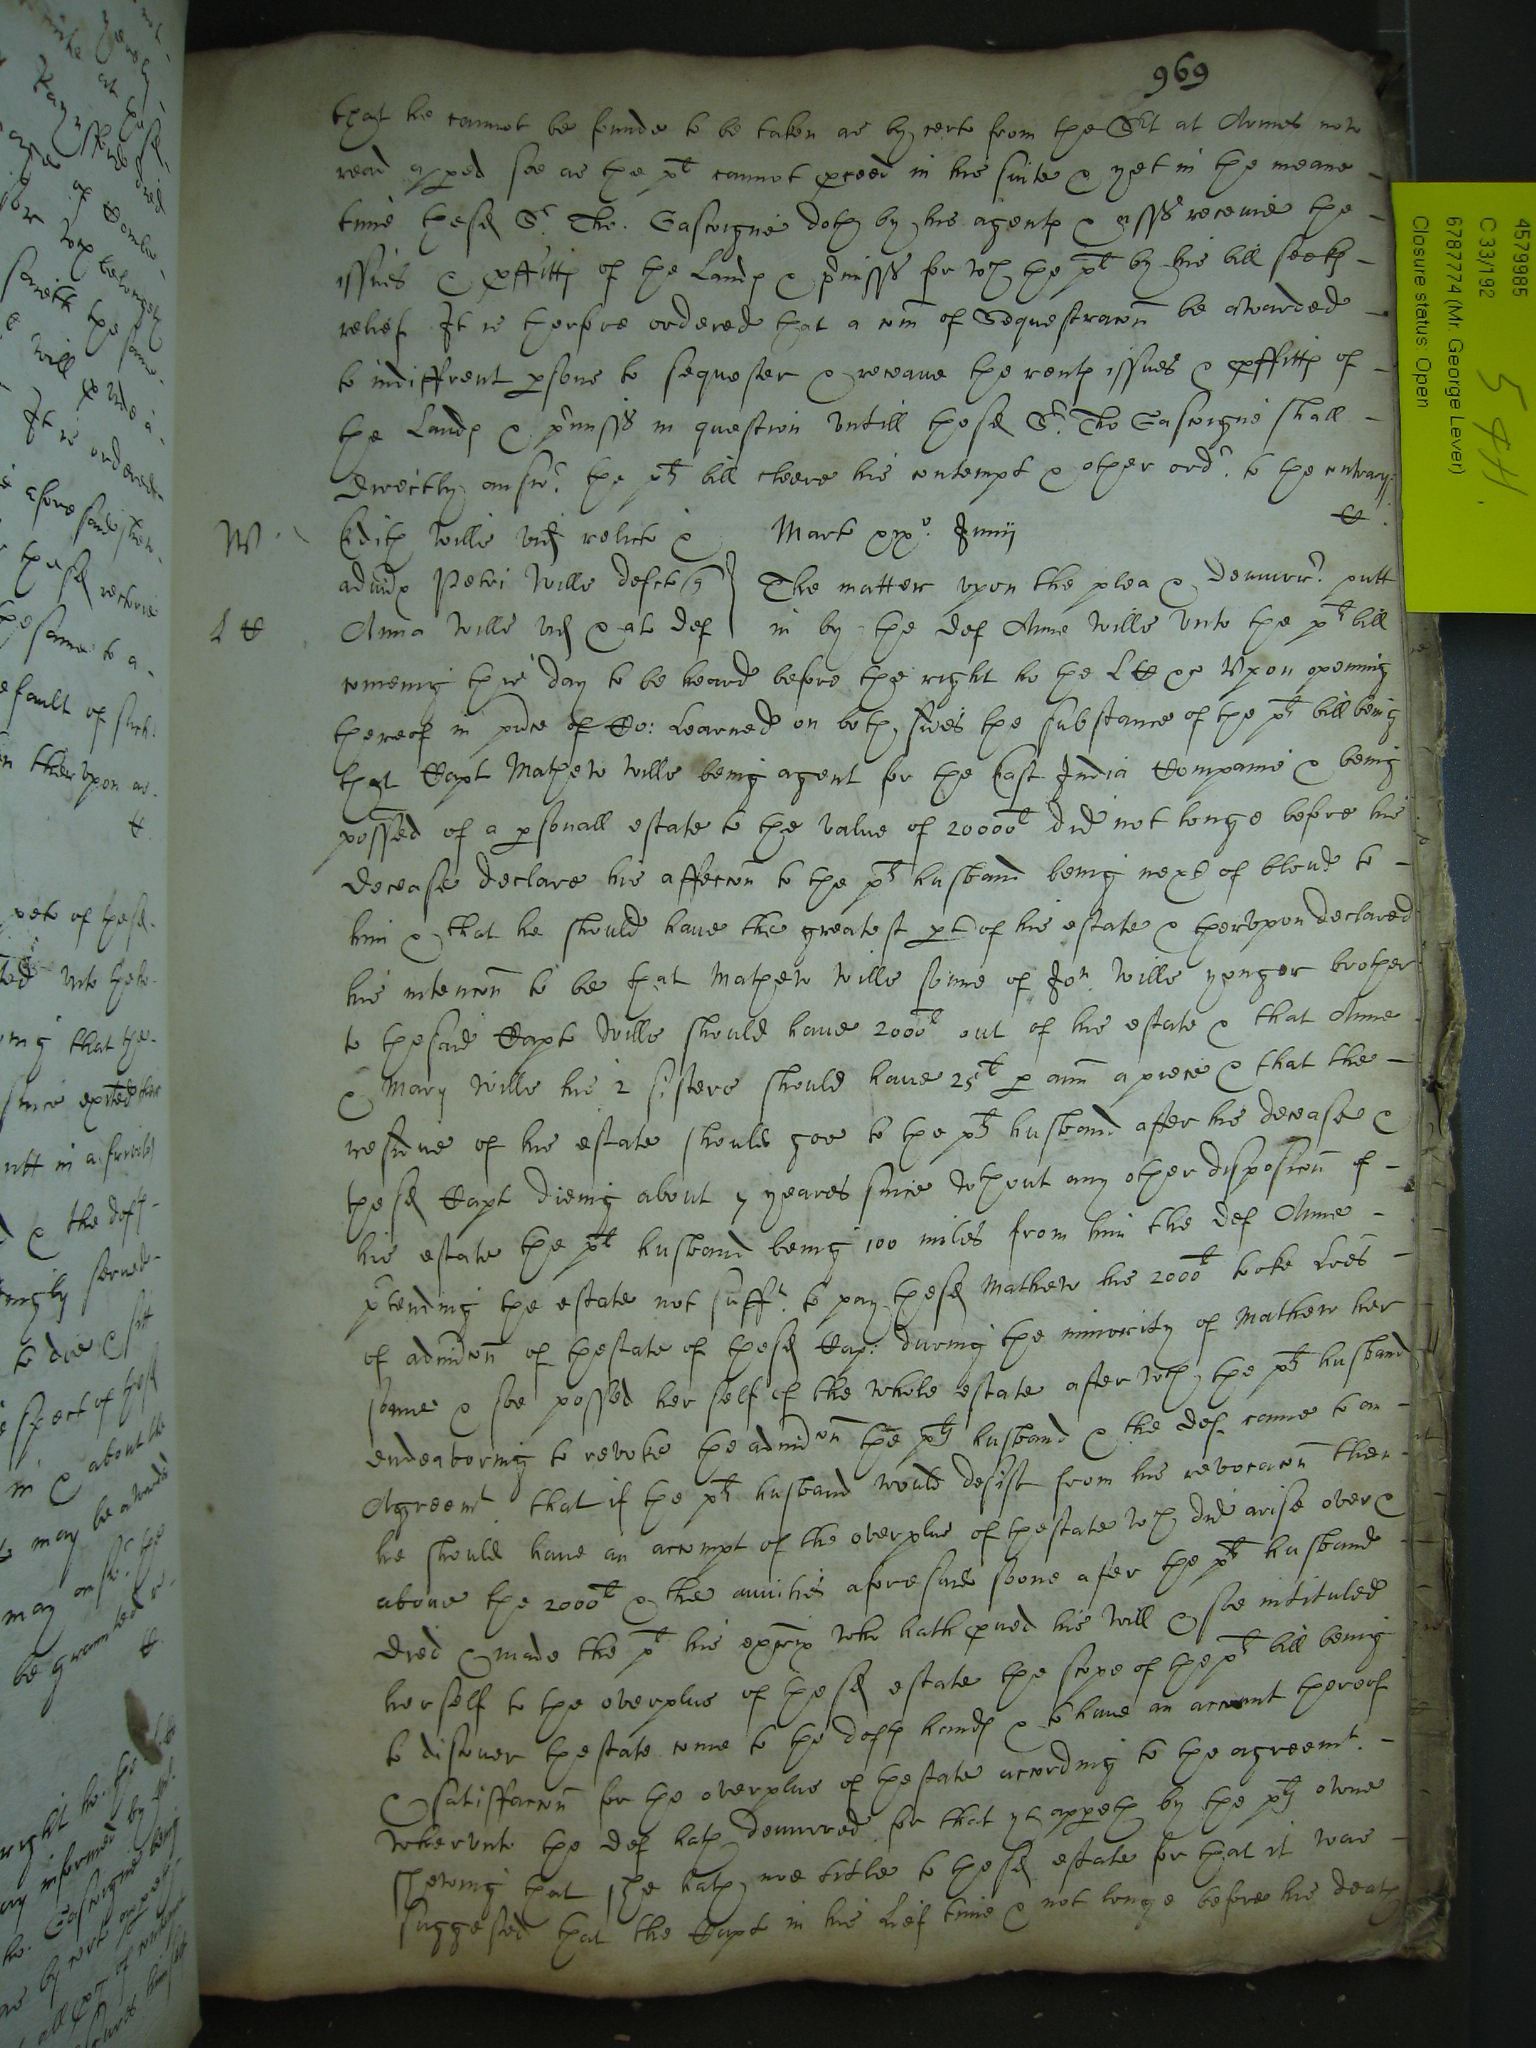 969
that he cannot be founde to be taken as by certe from the Sert at Armes now
read apped soe as the plt cannot pceed in his suite & yet in the meane
time the sd Sr. Tho. Gascoigne doth by his agents & assgs receive the
issues & pffitts of the Lands & pmisss for wch the plt by his bill seeks
relief It is therfore ordered that a com of Sequestracon be awarded
to indiffrent psons to sequester & receave the rents issues & pffitts of
the Lands & pmisss in question untill the sd Sr. Tho Gascoigne shall
directly answr. the plts bill cleere his contempt & other ordr. to the contrary
W
Edith Wills vid relicta &
Mart xixo Junij
admx Petri Wills defct qr
The matter upon the plea & demurrr. putt
L K
Anna Wills vid & al def
in by the def Anne Wills unto the plts bill
comeing this day to be heard before the right ho the LK &c Upon opening
thereof in pnce of Co: Learned on both sides the substance of the plts bill being
that Capt Mathew Wills being agent for the East India Companie & being
possed of a psonall estate to the value of 20000l did not longe before his
decease declare his affeccon to the plts husband being next of bloud to
him & that he should have the greatest pt of his estate & therupon declared
his intencon to be that Mathew Wills sonne of Jon. Wills yonger brother
to the said Capt Wills should have 2000l out of his estate & that Anne
& Mary Wills his 2 sisters should have 25l p ann a piece & that the
residue of his estate should goe to the plts husband after his decease &
the sd Capt dieing about 7 yeares since wthout any other disposicon of
his estate the plts husband being 100 miles from him the def Anne
ptending the estate not sufft. to pay the sd Mathew his 2000l tooke Lres
of admicon of thestate of the sd Cap: during the minority of Mathew her
sonne & soe possed her self of the whole estate after wch the plts husband
endeavoring to revoke the admicon the plts husband & the def came to an
Agreemt that if the plts husband would desist from his revocacon then
he should have an accompt of the overplus of thestate wch did arise over &
above the 2000l & the anuities aforesaid soone after the plts husband
died & made the plt his exrix who hath pved his will & soe intituled
herself to the overplus of the sd estate the scope of the plts bill being
to discover thestate come to the defts hands & to have an account thereof
& satisfaccon for the overplus of thestate according to the agreemt.
wherunto the def hath demurred for that yt appeth by the plts owne
shewing that she hath noe title to the sd estate for that it was
suggested that the Capt in his Lief time & not longe before his death
4579985
C 33/192
6787774 (Mr. George Lever)
Closure status: Open